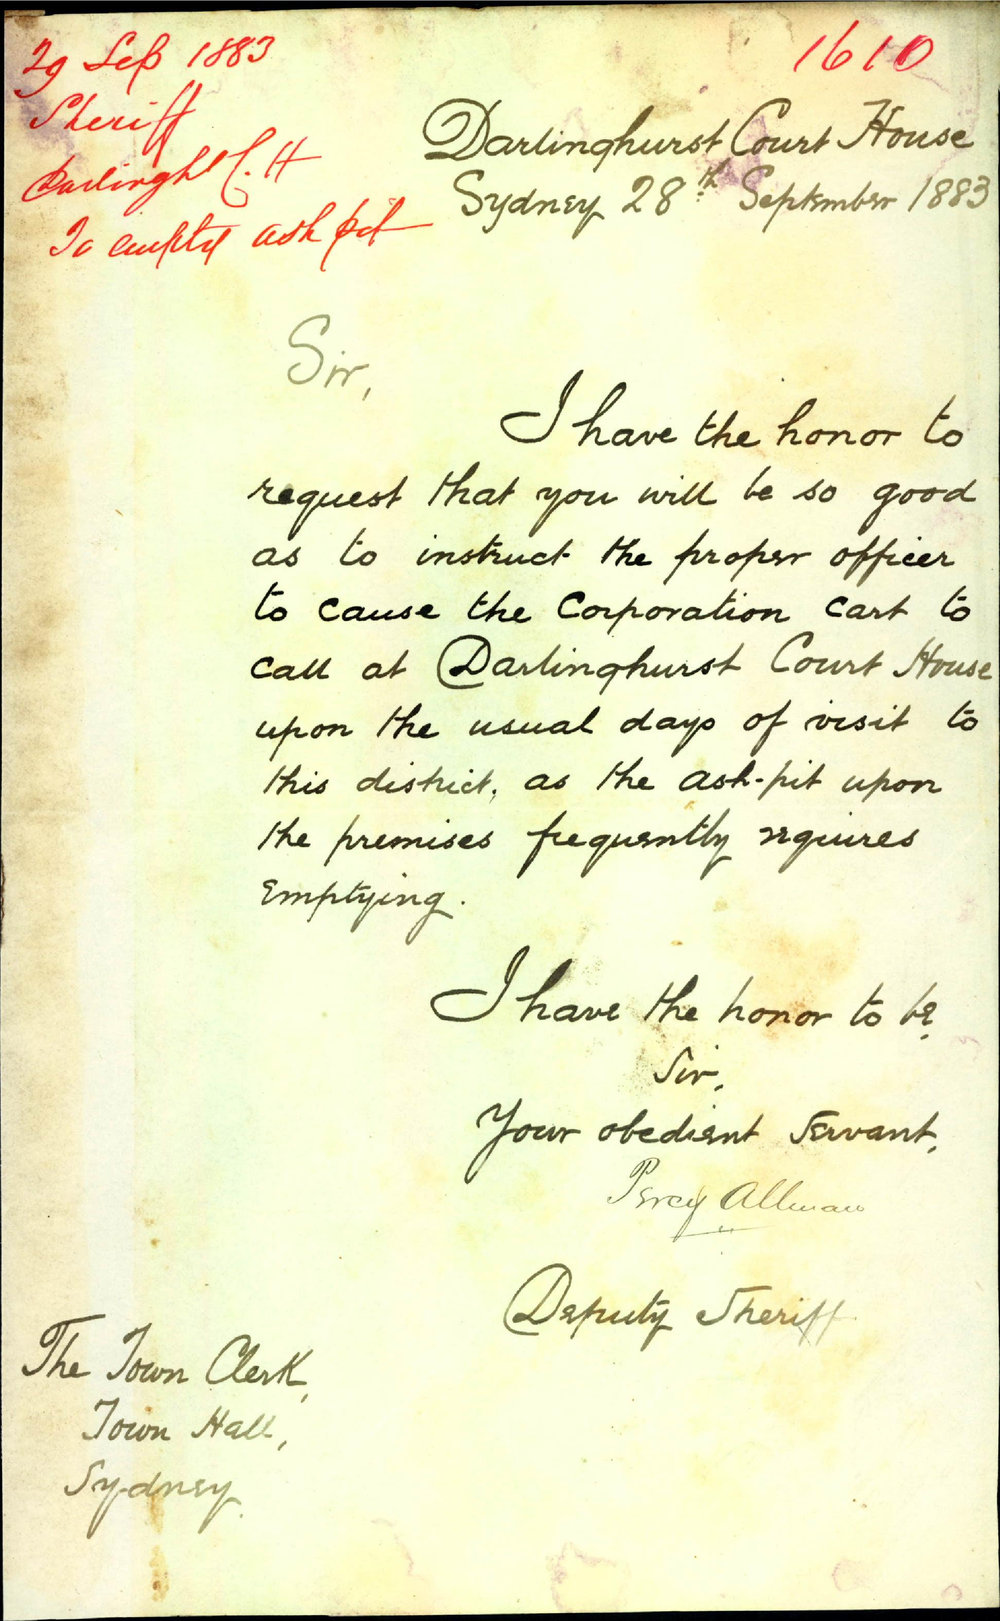 29 Sep 1883
Sheriff
Darlinght C. H
To empty ash pit
1610
Darlinghurst Court House
Sydney 28th September 1883
Sir,
I have the honor to
request that you will be so good
as to instruct the proper officer
to cause the Corporation cart to
call at Darlinghurst Court House
upon the usual days of visit to
this district, as the ash-pit upon
the premises frequently requires
emptying.
I have the honor to be,
Sir,
Your obedient Servant,
Percy Allman
Deputy Sheriff
The Town Clerk,
Town Hall,
Sydney.